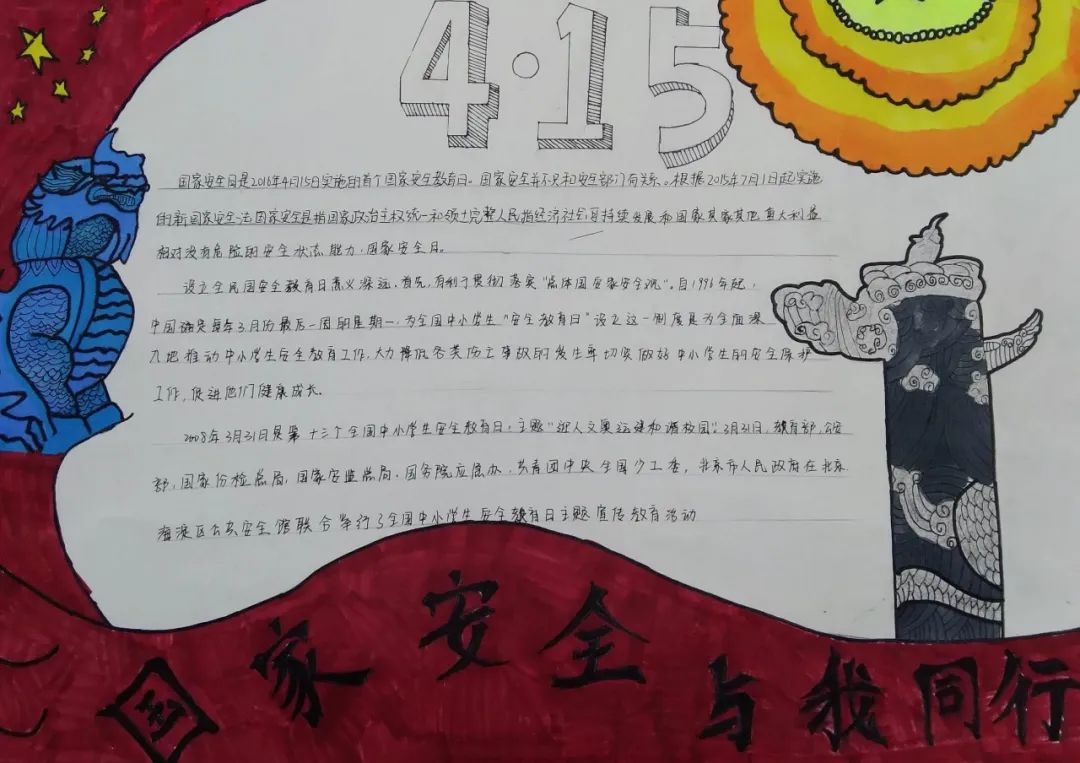 4·15
国家安全日是2016年4月15日实施的首个国家安全教育日。国家安全并不只和安全部门有关系。根据2015年7月1日起实施
的新国家安全法国家安全是指国家政治主权统一和领土完整人民指经济社会可持续发展和国家其家其他重大利益
相对没有危险的安全状态能力，国家安全日。
设立全民国安全教育日意义深远，首先，有利于贯彻落实“总体国安家安全观”。自1996年起，
中国确定每年3月份最后一周的星期一，为全国中小学生“安全教育日”设立这一制度是为全面深
入地推动中小学生安全教育工作，大力降低各类伤亡事故的发生率切实做好中小学生的安全保护
工作，促进他们健康成长。
2008年3月31日是第十三个全国中小学生安全教育日，主题“迎人文奥运建和谐校园”。3月31日，教育部，公安
部，国家份检总局，国家安监总局，国务院应急办，共青团中央全国少工委，北京市人民政府在北京
海淀区公共安全馆联合举行了全国中小学生安全教育日主题宣传教育活动
国家安全与我同行